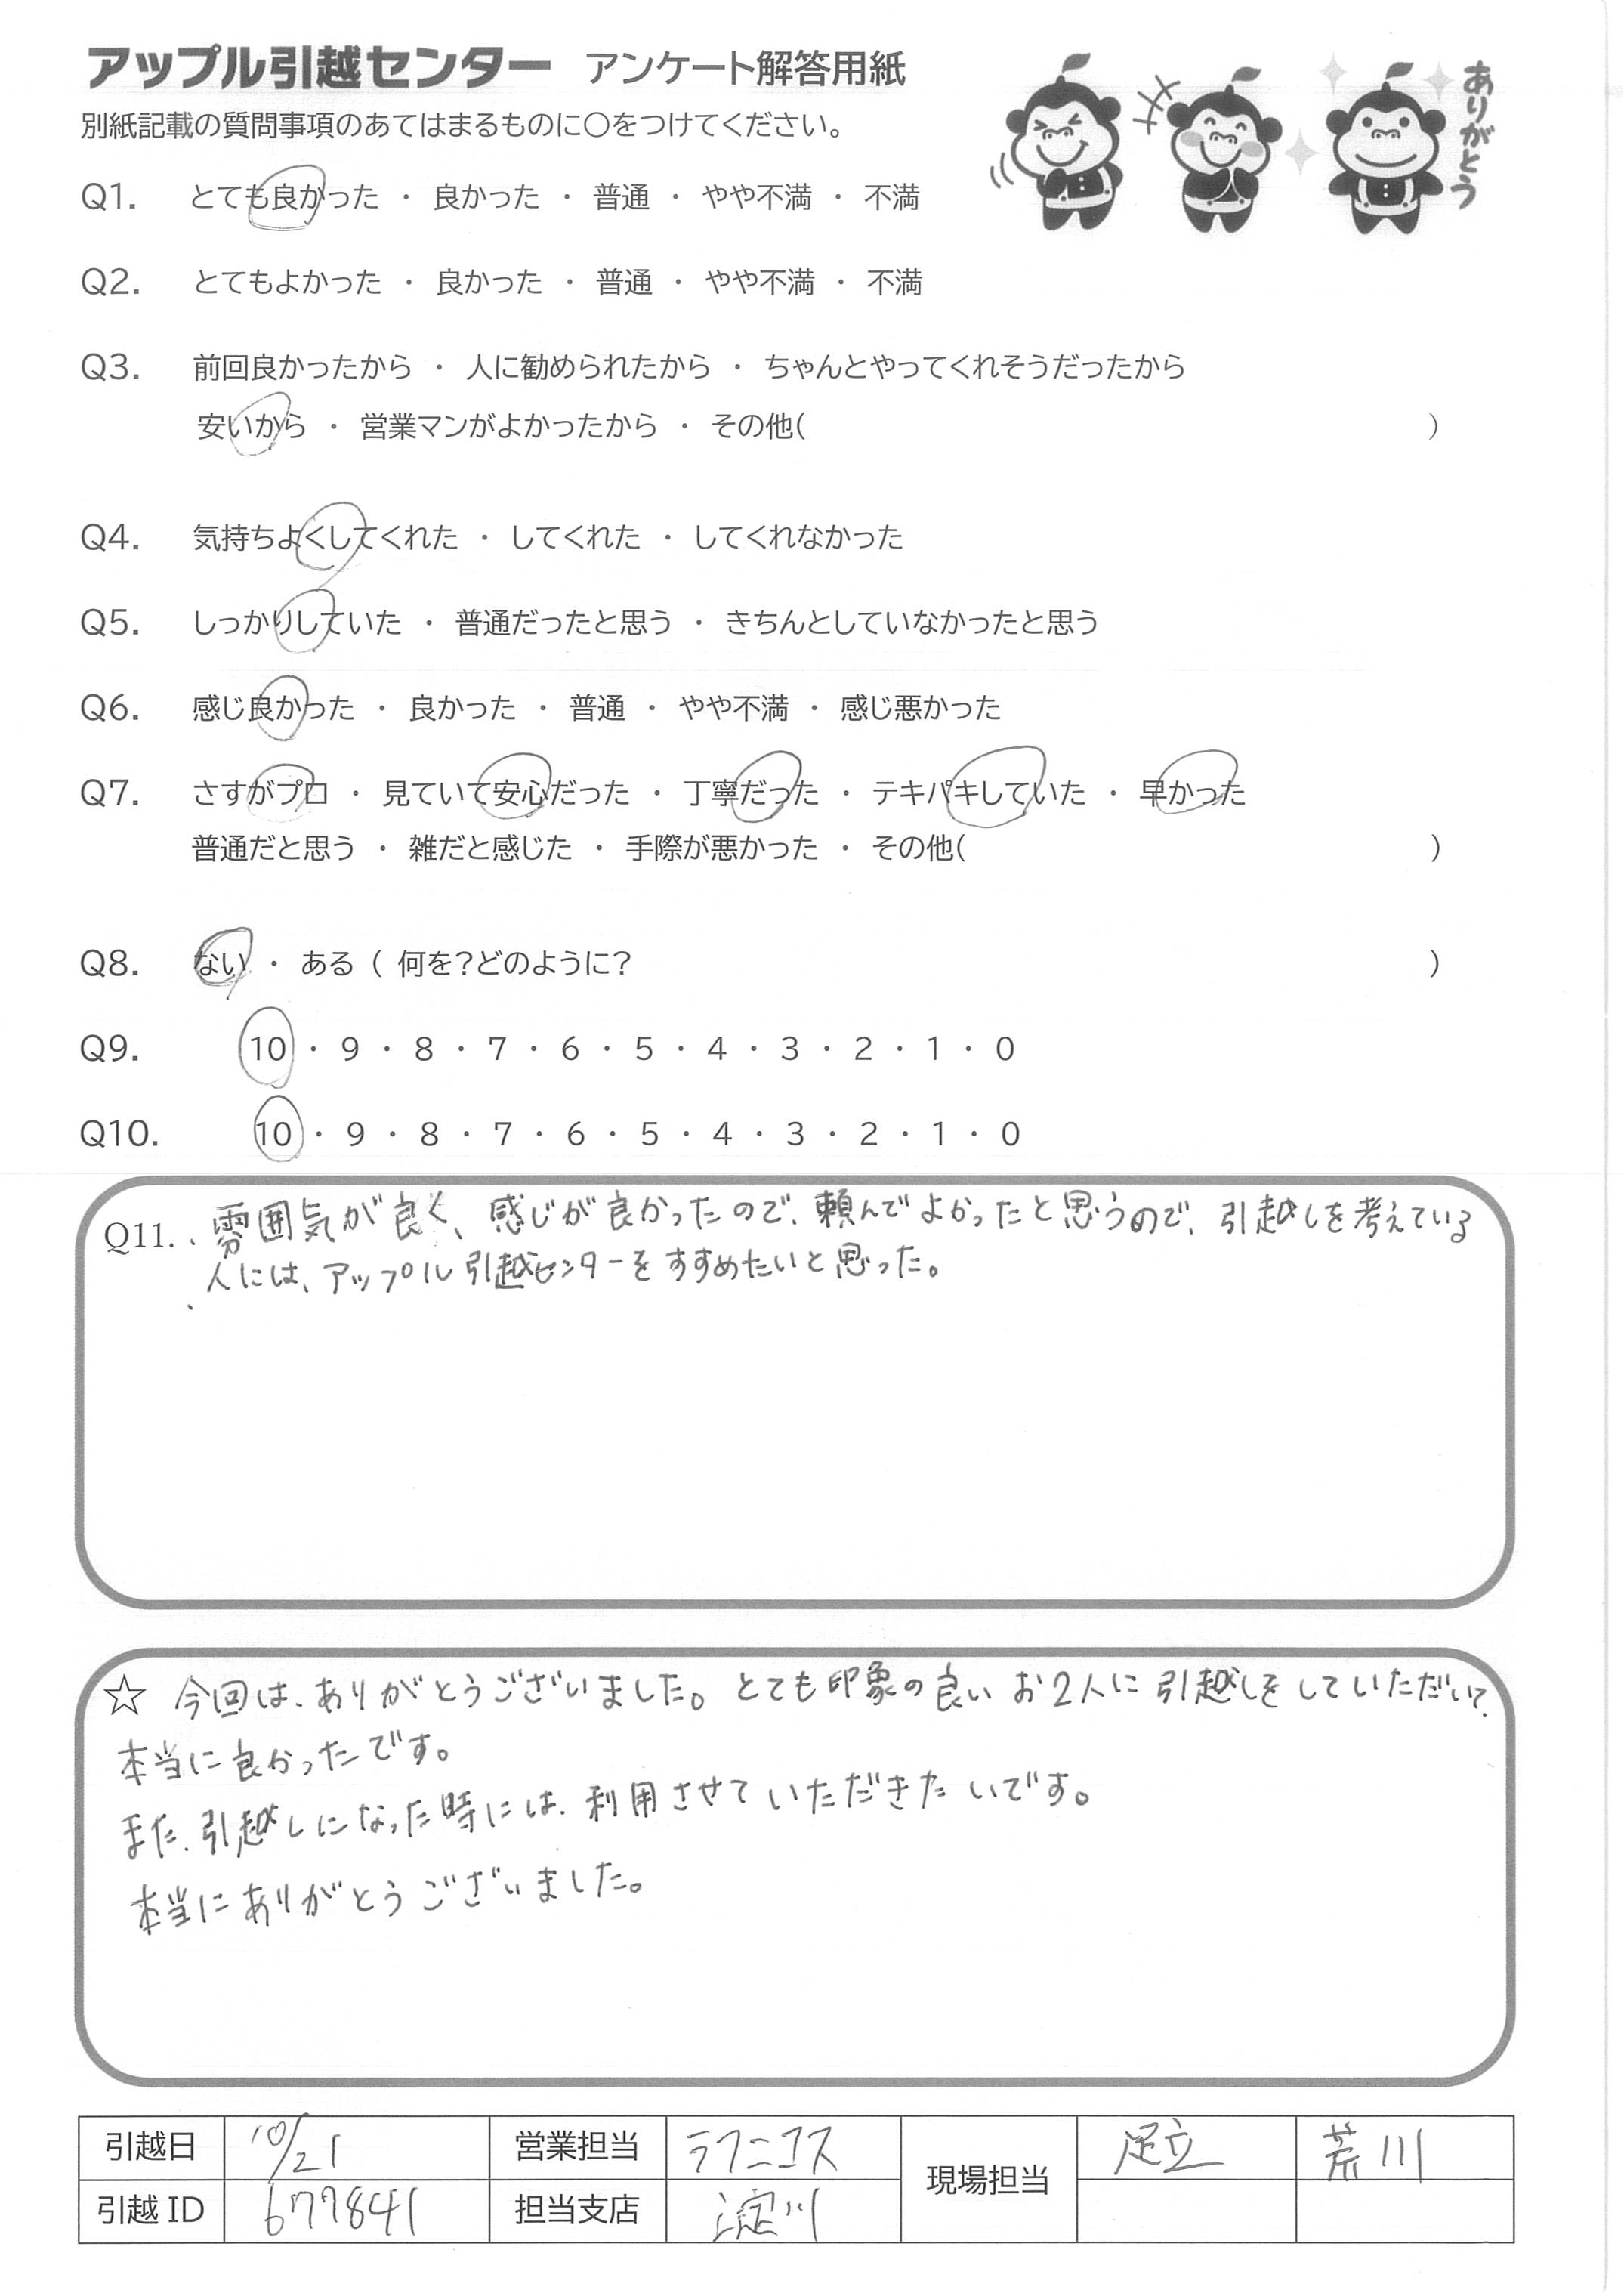 アップル引越センター アンケート解答用紙
ありがとう
別紙記載の質問事項のあてはまるものに〇をつけてください。
Q1. とても良かった ・ 良かった ・ 普通 ・ やや不満 ・ 不満
Q2. とてもよかった ・ 良かった ・ 普通 ・ やや不満 ・ 不満
Q3. 前回良かったから ・ 人に勧められたから ・ ちゃんとやってくれそうだったから
安いから ・ 営業マンがよかったから ・ その他( )
Q4. 気持ちよくしてくれた ・ してくれた ・ してくれなかった
Q5. しっかりしていた ・ 普通だったと思う ・ きちんとしていなかったと思う
Q6. 感じ良かった ・ 良かった ・ 普通 ・ やや不満 ・ 感じ悪かった
Q7. さすがプロ ・ 見ていて安心だった ・ 丁寧だった ・ テキパキしていた ・ 早かった
普通だと思う ・ 雑だと感じた ・ 手際が悪かった ・ その他( )
Q8. ない ・ ある ( 何を?どのように? )
Q9. 10 ・ 9 ・ 8 ・ 7 ・ 6 ・ 5 ・ 4 ・ 3 ・ 2 ・ 1 ・ 0
Q10. 10 ・ 9 ・ 8 ・ 7 ・ 6 ・ 5 ・ 4 ・ 3 ・ 2 ・ 1 ・ 0
Q11. 雰囲気が良く、感じが良かったので、頼んでよかったと思うので、引越しを考えている
人には、アップル引越センターをすすめたいと思った。
☆ 今回は、ありがとうございました。とても印象の良いお2人に引越しをしていただいて、
本当に良かったです。
また、引越しになった時には、利用させていただきたいです。
本当にありがとうございました。
引越日 10/21 営業担当 現場担当 足立 荒川
引越ID 677841 担当支店 淀川